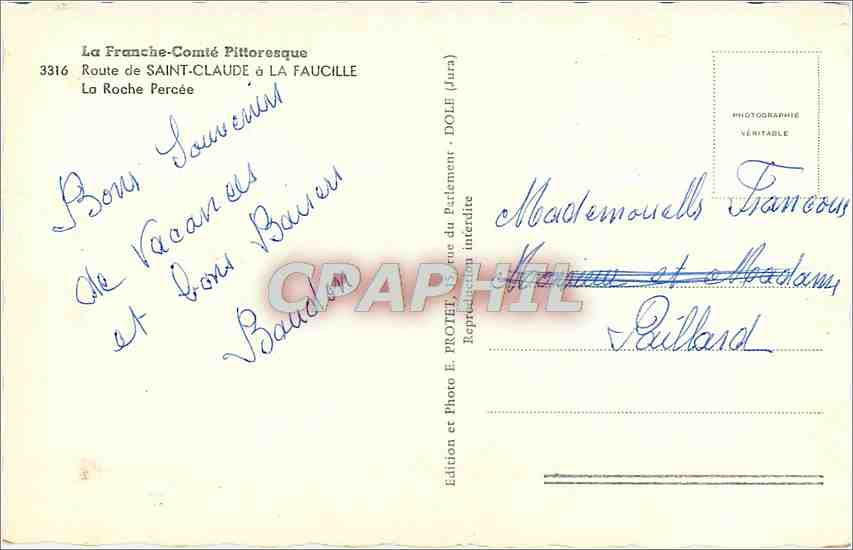 La Franche-Comté Pittoresque
3316 Route de SAINT-CLAUDE à LA FAUCILLE
La Roche Percée
Bons Souvenirs
de Vacances
et bons Baisers
Baudon
Edition et Photo E. PROTET, rue du Parlement - DOLE (Jura)
Reproduction interdite
PHOTOGRAPHIE
VÉRITABLE
Mademoiselle
Monsieur et Madame
Paillard
CPAPHIL